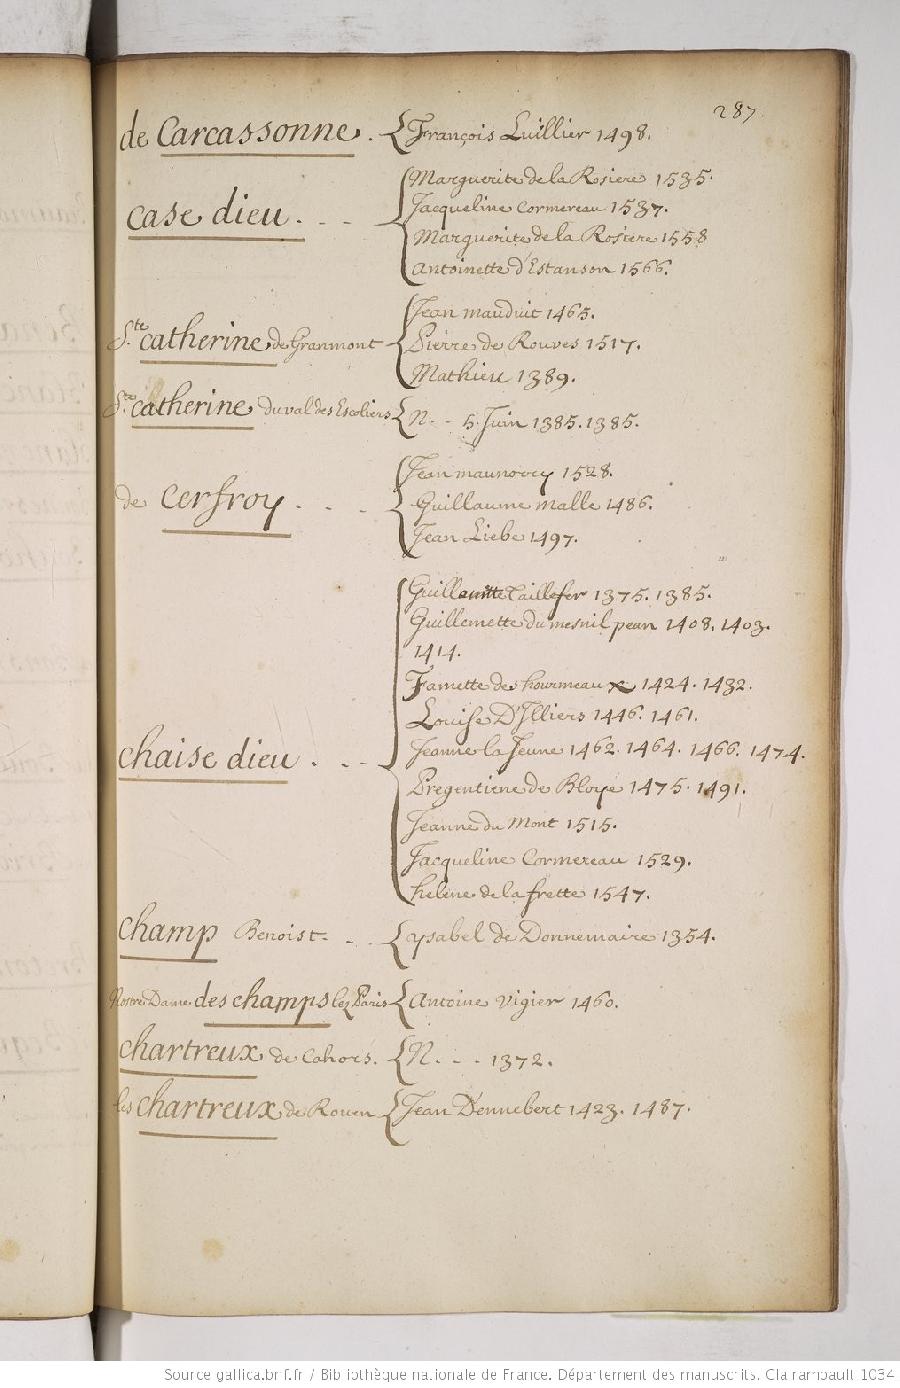 287
de Carcassonne. François Luillier 1498.
case dieu. Marguerite de la Rosiere 1535.
Jacqueline Cormereau 1537.
Marguerite de la Rosiere 1558
Antoinette d'Estanson 1566.
Ste catherine de Granmont Jean mauduit 1465.
Pierre de Rouves 1517.
Mathieu 1389.
Ste catherine du val des Escoliers N. - - 5. Juin 1385. 1385.
de Cerfroy. Jean maunorry 1528.
Guillaume malle 1486.
Jean Liebe 1497.
chaise dieu Taillefer 1375. 1385.
Guillemette du mesnil pean 1408. 1403.
1414.
1424. 1432.
Louise D'Illiers 1446. 1461.
Jeanne la Jeune 1462. 1464. 1466. 1474.
Pregentiene de Bloye 1475. 1491.
Jeanne du Mont 1515.
Jacqueline Cormereau 1529.
helene de la frette 1547.
champ Benoist ysabel de Donnemaire 1354.
Nostre Dame des champs lez Paris Antoine vigier 1460.
chartreux de Cahors. N. - - - 1372.
les chartreux de Rouen Jean Dennebert 1423. 1487.
Source gallica.bnf.fr / Bibliothèque nationale de France. Département des manuscrits. Clairambault 1034